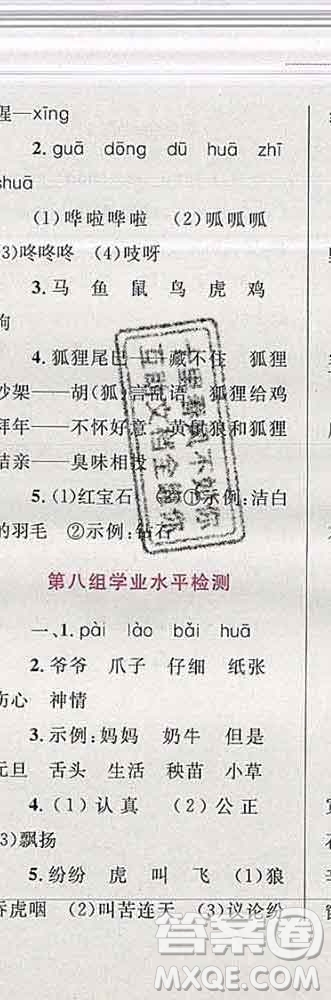 猩—xīng
2.guā dōng dū huā zhī
shuā
(1)哗啦哗啦 (2)呱呱呱
(3)咚咚咚 (4)吱呀
3.马 鱼 鼠 鸟 虎 鸡
狗
4.狐狸尾巴——藏不住 狐狸
吵架——胡(狐)言乱语 狐狸给鸡
拜年——不怀好意 黄鼠狼和狐狸
结亲——臭味相投
5.(1)红宝石 ①示例:洁白
的羽毛 ②示例:钻石
第八组学业水平检测
一、1.pài lào bǎi huā
2.爷爷 爪子 仔细 纸张
伤心 神情
3.示例:妈妈 奶牛 但是
元旦 舌头 生活 秧苗 小草
4.(1)认真 (2)公正
(3)飘扬
5.纷纷 虎 叫 飞 (1)狼
吞虎咽 (2)叫苦连天 (3)议论纷
作业圈
MXQE.COM